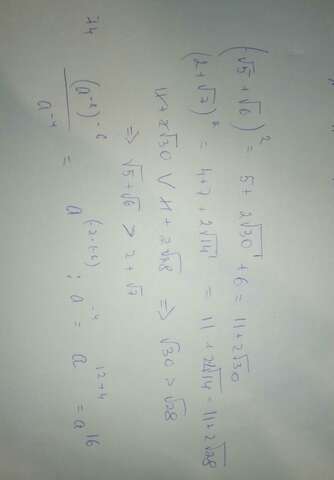 (√5 + √6)² = 5 + 2√30 + 6 = 11 + 2√30
(2 + √7)² = 4 + 7 + 2√14 = 11 + 2√14 = 11 + 2√28
11 + 2√30 V 11 + 2√28 => √30 > √28
=> √5 + √6 > 2 + √7
74
(a⁻²)⁻⁶ / a⁻⁴ = a^(-2·(-6)) : a⁻⁴ = a^(12+4) = a¹⁶